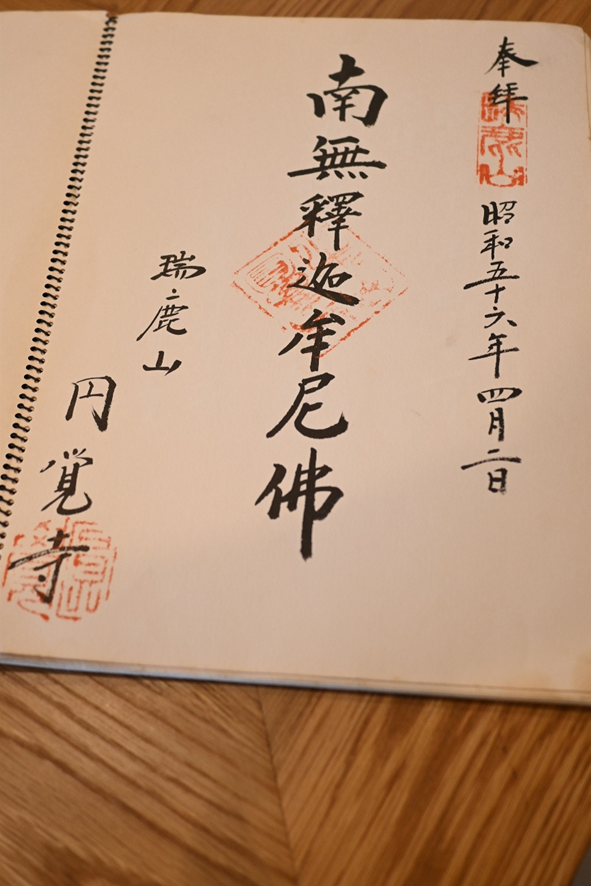 奉拝
昭和五十六年四月二日
南無釋迦牟尼佛
瑞鹿山
円覚寺